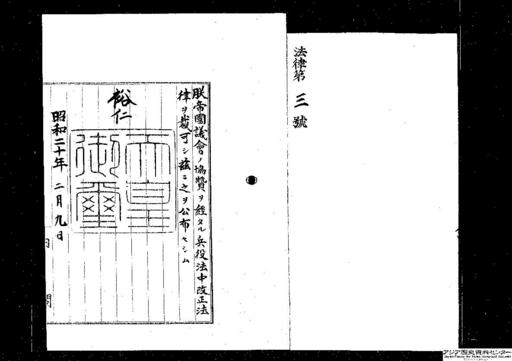 法律第三號
朕帝國議會ノ協贊ヲ經タル兵役法中改正法
律ヲ裁可シ茲ニ之ヲ公布セシム
裕仁
天皇
御璽
昭和二十年二月九日
内閣
アジア歴史資料センター